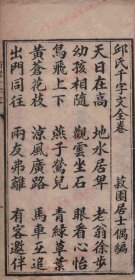 邱氏千字文全卷
菽園居士偶編
天日在高 地水居卑 老翁徐步
幼孩相隨 觀雲坐石 眼看心怡
鳥飛上下 燕子鶯兒 青綠草葉
黃蒼花枝 涼風廣路 馬車互追
出門同往 兩友弗離 有客邀伴